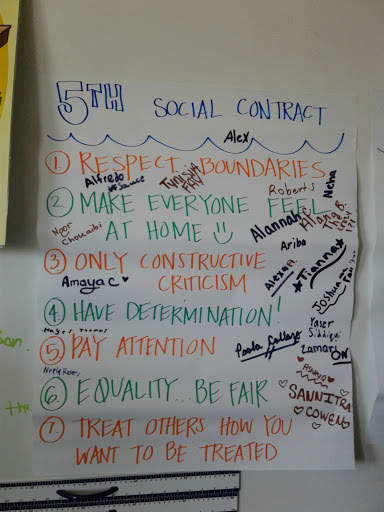 5TH SOCIAL CONTRACT
Alex
① RESPECT..BOUNDARIES
Alfredo
Sauce
Robert.S
Neha
② MAKE EVERYONE FEEL
AT HOME
Noor
Chouaibi
Alannah
Ariba
③ ONLY CONSTRUCTIVE
CRITICISM
Amaya C
Alexa A.
Tianna
Joshua
④ HAVE DETERMINATION!
Yaser
Siddiqui
⑤ PAY ATTENTION
Paola
Zamarion
⑥ EQUALITY..BE FAIR
SANNITRA
COWENS
⑦ TREAT OTHERS HOW YOU
WANT TO BE TREATED